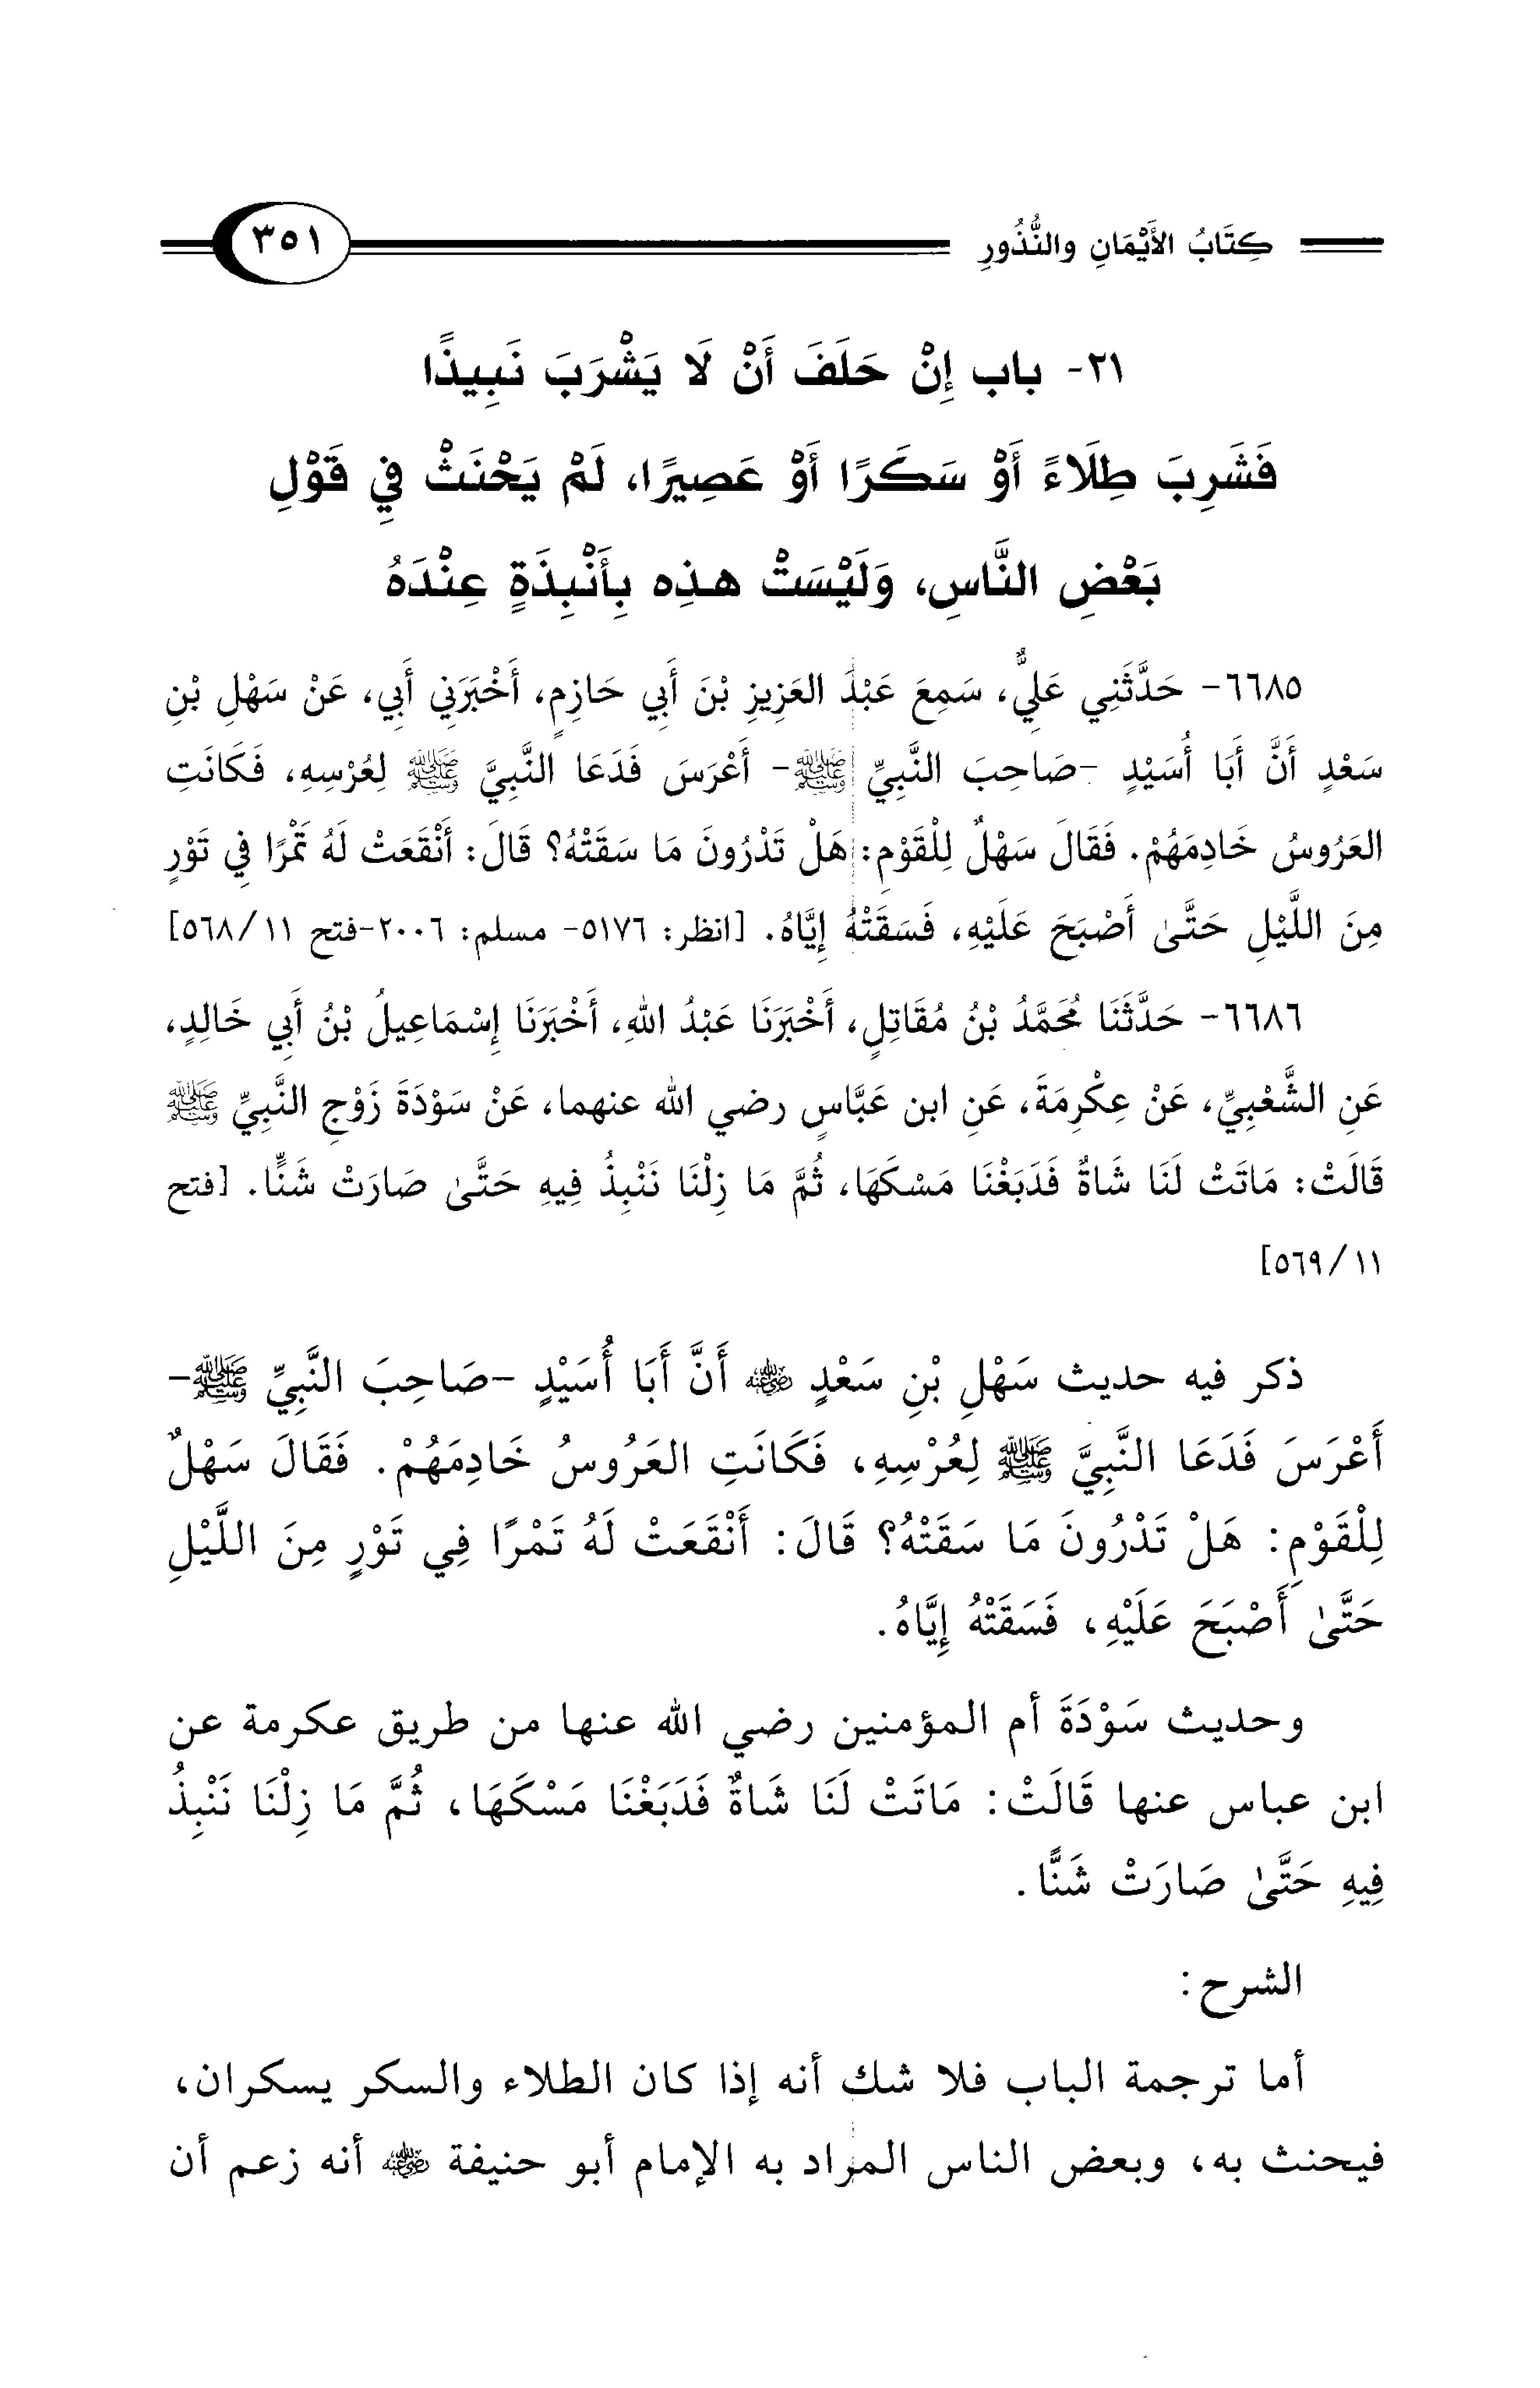 كِتَابُ الأَيْمَانِ والنُّذُورِ ٣٥١
٢١- باب إِنْ حَلَفَ أَنْ لَا يَشْرَبَ نَبِيذًا
فَشَرِبَ طِلَاءً أَوْ سَكَرًا أَوْ عَصِيرًا، لَمْ يَحْنَثْ فِي قَوْلِ
بَعْضِ النَّاسِ، وَلَيْسَتْ هذِه بِأَنْبِذَةٍ عِنْدَهُ
٦٦٨٥- حَدَّثَنِي عَلِيٌّ، سَمِعَ عَبْدَ العَزِيزِ بْنَ أَبِي حَازِمٍ، أَخْبَرَنِي أَبِي، عَنْ سَهْلِ بْنِ
سَعْدٍ أَنَّ أَبَا أُسَيْدٍ -صَاحِبَ النَّبِيِّ ﷺ- أَعْرَسَ فَدَعَا النَّبِيَّ ﷺ لِعُرْسِهِ، فَكَانَتِ
العَرُوسُ خَادِمَهُمْ. فَقَالَ سَهْلٌ لِلْقَوْمِ: هَلْ تَدْرُونَ مَا سَقَتْهُ؟ قَالَ: أَنْقَعَتْ لَهُ تَمْرًا فِي تَوْرٍ
مِنَ اللَّيْلِ حَتَّىٰ أَصْبَحَ عَلَيْهِ، فَسَقَتْهُ إِيَّاهُ. [انظر: ٥١٧٦- مسلم: ٢٠٠٦-فتح ٥٦٨/١١]
٦٦٨٦- حَدَّثَنَا مُحَمَّدُ بْنُ مُقَاتِلٍ، أَخْبَرَنَا عَبْدُ اللهِ، أَخْبَرَنَا إِسْمَاعِيلُ بْنُ أَبِي خَالِدٍ،
عَنِ الشَّعْبِيِّ، عَنْ عِكْرِمَةَ، عَنِ ابن عَبَّاسٍ رضي الله عنهما، عَنْ سَوْدَةَ زَوْجِ النَّبِيِّ ﷺ
قَالَتْ: مَاتَتْ لَنَا شَاةٌ فَدَبَغْنَا مَسْكَهَا، ثُمَّ مَا زِلْنَا نَنْبِذُ فِيهِ حَتَّىٰ صَارَتْ شَنًّا. [فتح
٥٦٩/١١]
ذكر فيه حديث سَهْلِ بْنِ سَعْدٍ ﵁ أَنَّ أَبَا أُسَيْدٍ -صَاحِبَ النَّبِيِّ ﷺ-
أَعْرَسَ فَدَعَا النَّبِيَّ ﷺ لِعُرْسِهِ، فَكَانَتِ العَرُوسُ خَادِمَهُمْ. فَقَالَ سَهْلٌ
لِلْقَوْمِ: هَلْ تَدْرُونَ مَا سَقَتْهُ؟ قَالَ: أَنْقَعَتْ لَهُ تَمْرًا فِي تَوْرٍ مِنَ اللَّيْلِ
حَتَّىٰ أَصْبَحَ عَلَيْهِ، فَسَقَتْهُ إِيَّاهُ.
وحديث سَوْدَةَ أم المؤمنين رضي الله عنها من طريق عكرمة عن
ابن عباس عنها قَالَتْ: مَاتَتْ لَنَا شَاةٌ فَدَبَغْنَا مَسْكَهَا، ثُمَّ مَا زِلْنَا نَنْبِذُ
فِيهِ حَتَّىٰ صَارَتْ شَنًّا.
الشرح:
أما ترجمة الباب فلا شك أنه إذا كان الطلاء والسكر يسكران،
فيحنث به، وبعض الناس المراد به الإمام أبو حنيفة ﵁ أنه زعم أن